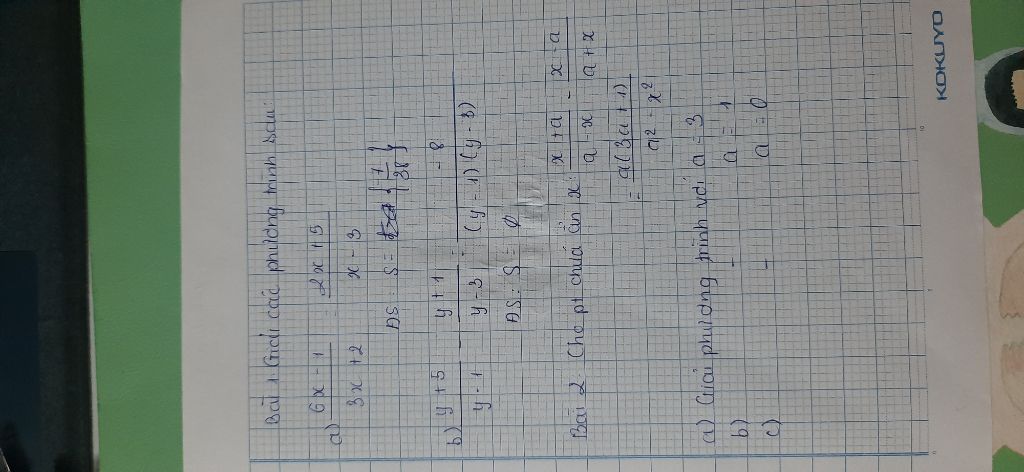 Bài 1 Giải các phương trình sau:
a) 6x - 1 / 3x + 2 = 2x + 5 / x - 3
ĐS: S = { 1 / 38 }
b) y + 5 / y - 1 - y + 1 / y - 3 = - 8 / (y - 1)(y - 3)
ĐS: S = ∅
Bài 2. Cho pt chứa ẩn x: x + a / a - x - x - a / a + x
= a(3a + 1) / a² - x²
a) Giải phương trình với a = - 3
b) - a = 1
c) - a = 0
KOKUYO